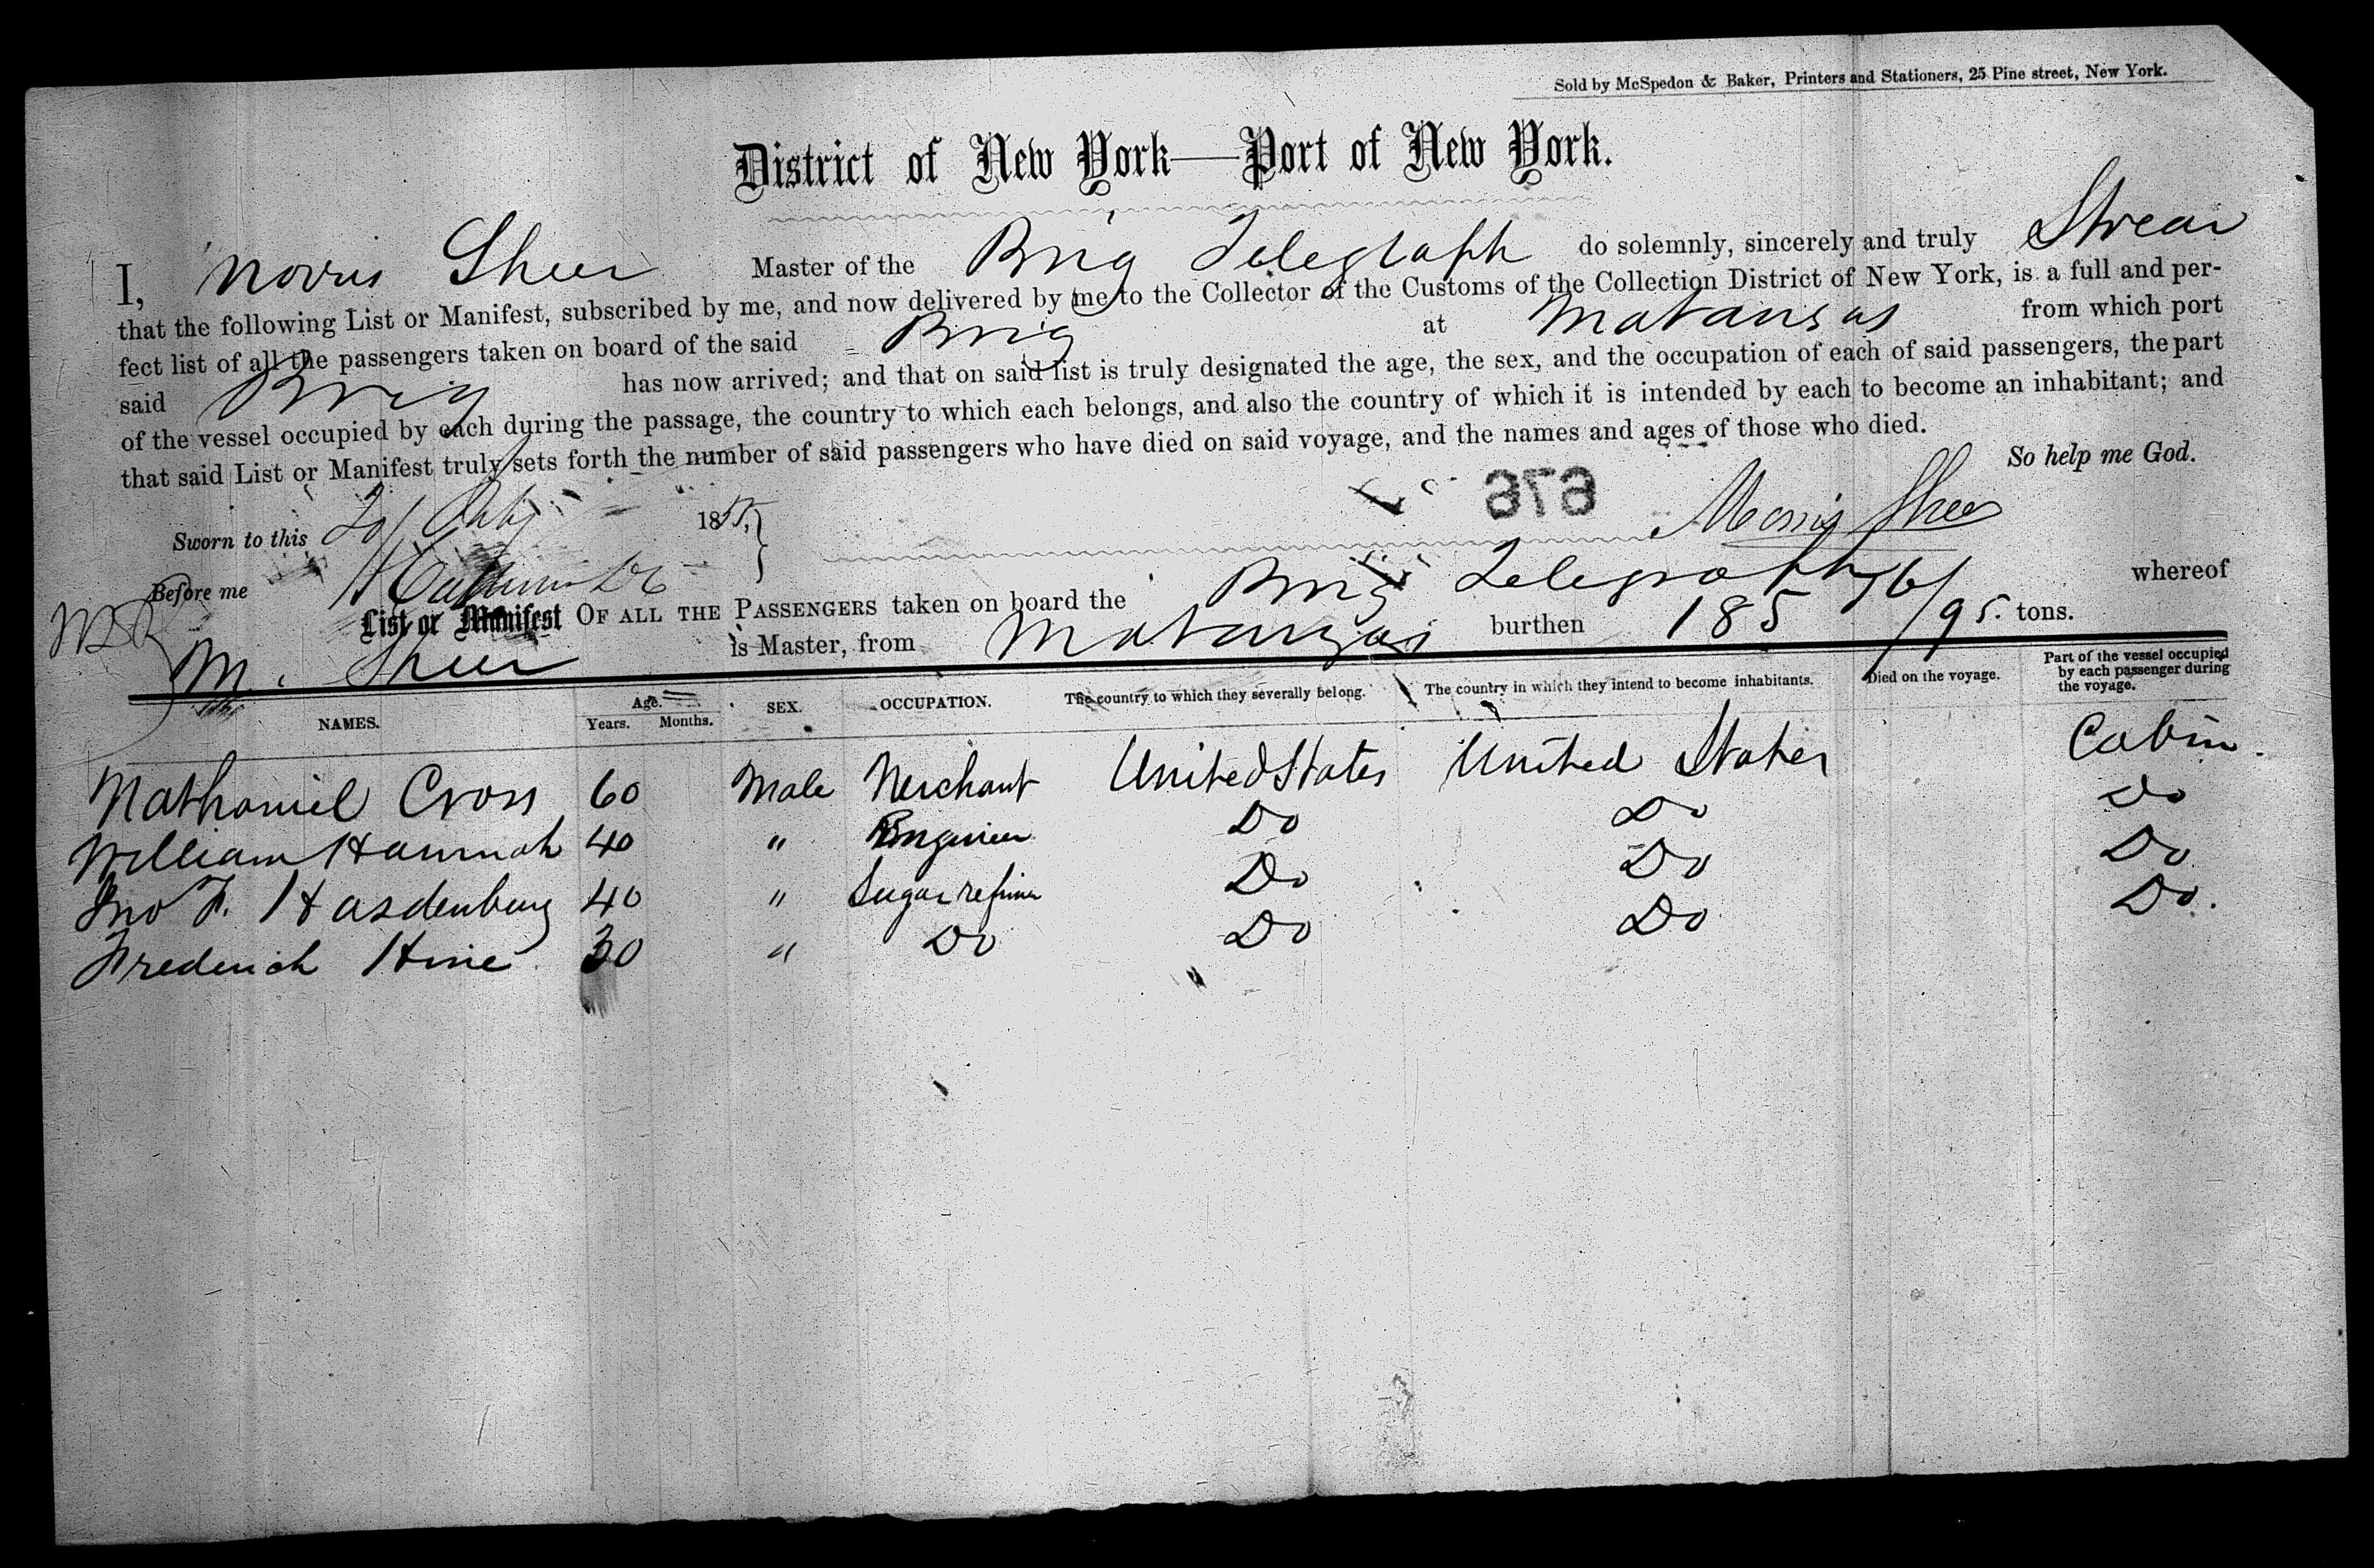 Sold by McSpedon & Baker, Printers and Stationers, 25 Pine street, New York.
District of New York—Port of New York.
I, Morris Sheer Master of the Brig Telegraph do solemnly, sincerely and truly Swear
that the following List or Manifest, subscribed by me, and now delivered by me to the Collector of the Customs of the Collection District of New York, is a full and per-
fect list of all the passengers taken on board of the said Brig at Matansas from which port
said Brig has now arrived; and that on said list is truly designated the age, the sex, and the occupation of each of said passengers, the part
of the vessel occupied by each during the passage, the country to which each belongs, and also the country of which it is intended by each to become an inhabitant; and
that said List or Manifest truly sets forth the number of said passengers who have died on said voyage, and the names and ages of those who died.
So help me God.
Sworn to this 20/ 1855, Morris Sheer
Before me
List or Manifest OF ALL THE PASSENGERS taken on board the Brig Telegraph whereof
M. Sheer is Master, from Matanzas burthen 185 76/95. tons.
NAMES. Age. Years. Months. SEX. OCCUPATION. The country to which they severally belong. The country in which they intend to become inhabitants. Died on the voyage. Part of the vessel occupied by each passenger during the voyage.
Nathaniel Cross 60 Male Merchant United States United States Cabin.
William Hannah 40 " Engineer Do Do Do
Jno F. Hasdenburg 40 " Sugar refiner Do Do Do
Frederick Hine 30 " Do Do Do Do.